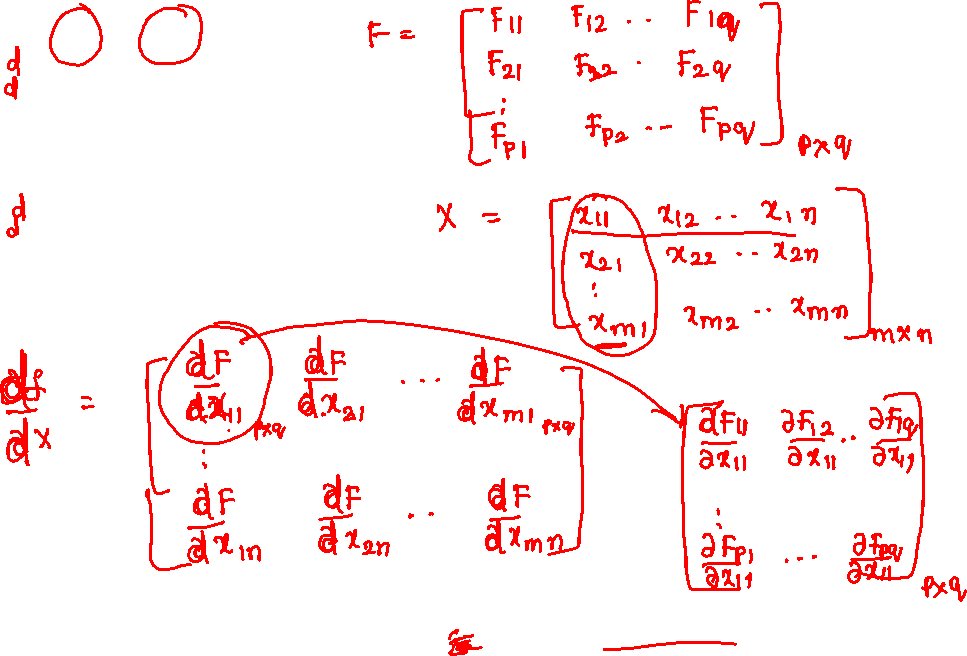 d
d
F = [ F11 F12 .. F1q
F21 F22 . F2q
⋮
Fp1 Fp2 ... Fpq ] p×q
d
X = [ x11 x12 .. x1n
x21 x22 .. x2n
⋮
xm1 xm2 .. xmn ] m×n
df/dX = [ dF/dx11 p×q dF/dx21 ... dF/dxm1 p×q
⋮
dF/dx1n dF/dx2n .. dF/dxmn ]
[ ∂F11/∂x11 ∂F12/∂x11 .. ∂F1q/∂x11
⋮
∂Fp1/∂x11 ... ∂Fpq/∂x11 ] p×q